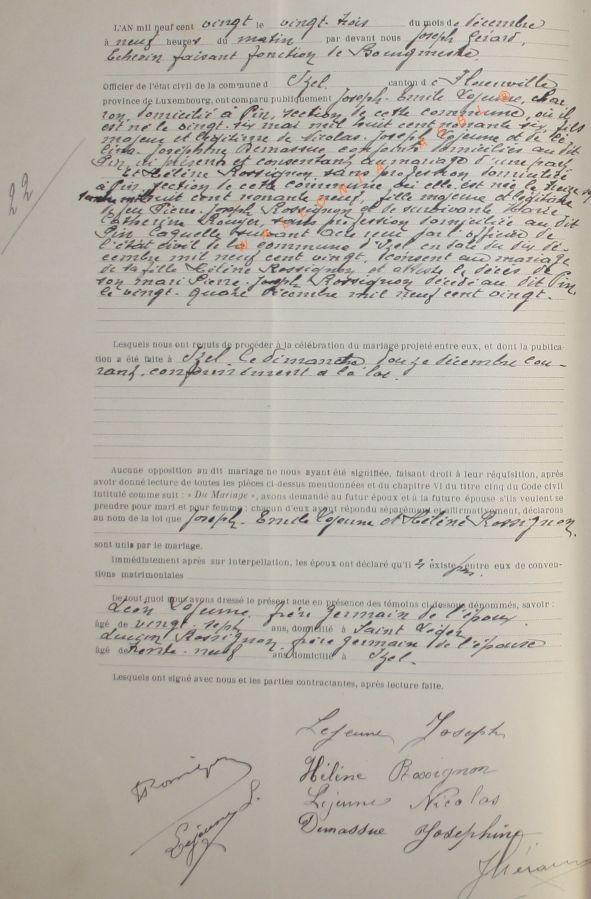 L'AN mil neuf cent vingt le vingt-trois du mois de décembre
à neuf heures du matin par devant nous Joseph Gérard,
Echevin faisant fonction de Bourgmestre
Officier de l'état civil de la commune d Izel canton de Florenville
province de Luxembourg, ont comparu publiquement Joseph-Emile Lejeune, char
ron, domicilié à Pin, section de cette commune, où il
est né le vingt-six mai mil huit cent nonante six, fils
majeur et légitime de Nicolas-Joseph Lejeune et de
Joséphine conjoints domiciliés au dit
Pin, ici présents et consentant au mariage d'une part
Et Hélène Rossignon sans profession domiciliée
à Pin, section de cette commune où elle est née le treize
mil huit cent nonante neuf, fille majeure et légitime
de feu Pierre-Joseph Rossignon et de Marie
Catherine sans profession domiciliée au dit
Pin laquelle suivant acte reçu par l'officier de
l'état civil de la commune d'Izel en date du dix dé-
cembre mil neuf cent vingt, consent au mariage
de sa fille Hélène Rossignon et atteste le décès de
son mari Pierre-Joseph Rossignon décédé au dit Pin,
le vingt-quatre décembre mil neuf cent vingt.
22
Lesquels nous ont requis de procéder à la célébration du mariage projeté entre eux, et dont la publica-
tion a été faite à Izel le dimanche douze décembre cou-
rant, conformément à la loi.
Aucune opposition au dit mariage ne nous ayant été signifiée, faisant droit à leur réquisition, après
avoir donné lecture de toutes les pièces ci-dessus mentionnées et du chapitre VI du titre cinq du Code civil
intitulé comme suit : « Du Mariage », avons demandé au futur époux et à la future épouse s'ils veulent se
prendre pour mari et pour femme : chacun d'eux ayant répondu séparément et affirmativement, déclarons
au nom de la loi que Joseph-Emile Lejeune et Hélène Rossignon,
sont unis par le mariage.
Immédiatement après sur interpellation, les époux ont déclaré qu'il n'existe pas entre eux de conven-
tions matrimoniales
De tout quoi nous avons dressé le présent acte en présence des témoins ci-dessous dénommés, savoir :
Léon Lejeune, frère germain de l'époux
âgé de vingt-sept ans, domicilié à Saint Léger
Lucien Rossignon, frère germain de l'épouse
âgé de trente-neuf ans, domicilié à Izel.
Lesquels ont signé avec nous et les parties contractantes, après lecture faite.
Lejeune Joseph
Hélène Rossignon
Lejeune Nicolas
Demassue Joséphine
Lejeune L.